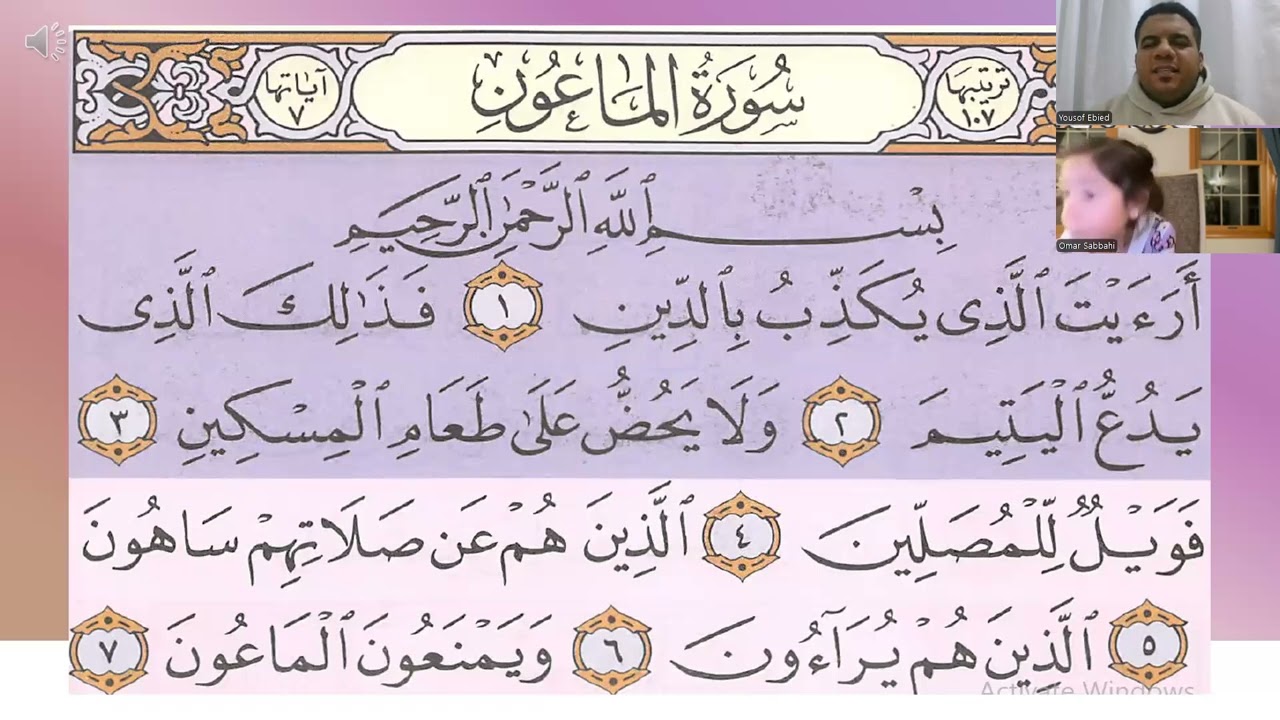 ترتيبها ١٠٧
سُورَةُ المَاعُونِ
آيَاتها ٧
Yousof Ebied
بِسْمِ ٱللَّهِ ٱلرَّحْمَٰنِ ٱلرَّحِيمِ
Omar Sabbahi
أَرَءَيْتَ ٱلَّذِى يُكَذِّبُ بِٱلدِّينِ ١ فَذَٰلِكَ ٱلَّذِى
يَدُعُّ ٱلْيَتِيمَ ٢ وَلَا يَحُضُّ عَلَىٰ طَعَامِ ٱلْمِسْكِينِ ٣
فَوَيْلٌ لِّلْمُصَلِّينَ ٤ ٱلَّذِينَ هُمْ عَن صَلَاتِهِمْ سَاهُونَ
٥ ٱلَّذِينَ هُمْ يُرَآءُونَ ٦ وَيَمْنَعُونَ ٱلْمَاعُونَ ٧
Activate Windows